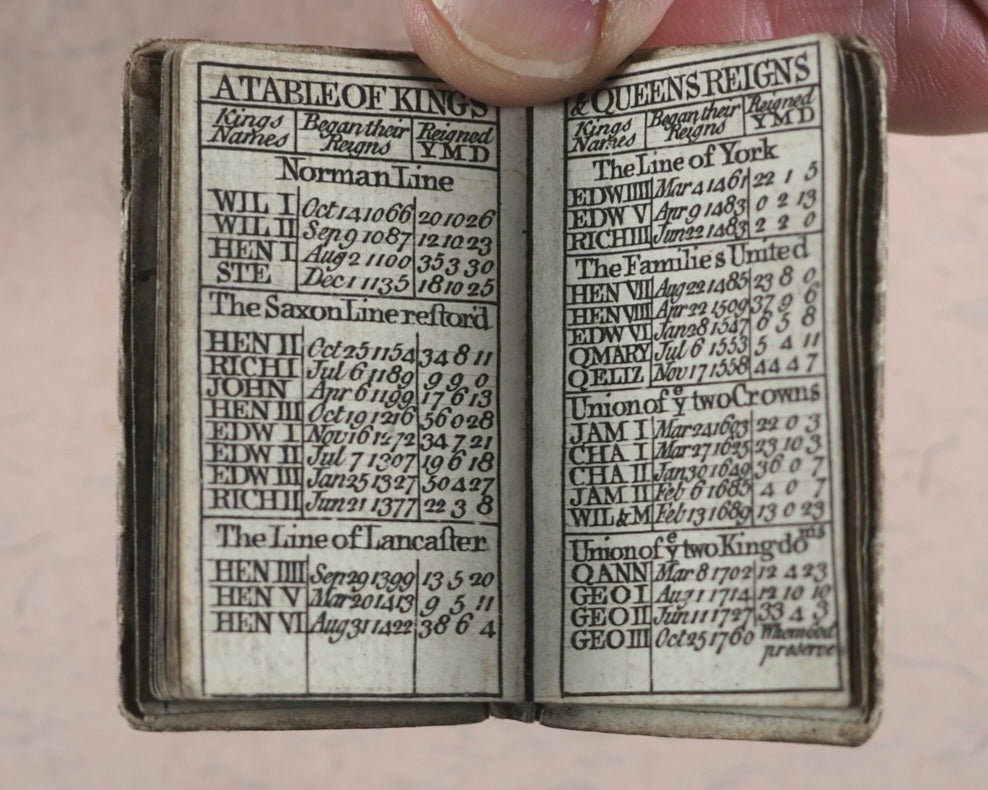 A TABLE OF KINGS
Kings Names Began their Reigns Reigned Y M D
Norman Line
WIL I Oct 14 1066 20 10 26
WIL II Sep 9 1087 12 10 23
HEN I Aug 2 1100 35 3 30
STE Dec 1 1135 18 10 25
The Saxon Line reſtor'd
HEN II Oct 25 1154 34 8 11
RICH I Jul 6 1189 9 9 0
JOHN Apr 6 1199 17 6 13
HEN III Oct 19 1216 56 0 28
EDW I Nov 16 1272 34 7 21
EDW II Jul 7 1307 19 6 18
EDW III Jan 25 1327 50 4 27
RICH II Jun 21 1377 22 3 8
The Line of Lancaſter
HEN IIII Sep 29 1399 13 5 20
HEN V Mar 20 1413 9 5 11
HEN VI Aug 31 1422 38 6 4
& QUEENS REIGNS
Kings Names Began their Reigns Reigned Y M D
The Line of York
EDW IIII Mar 4 1461 22 1 5
EDW V Apr 9 1483 0 2 13
RICH III Jun 22 1483 2 2 0
The Families United
HEN VII Aug 22 1485 23 8 0
HEN VIII Apr 22 1509 37 9 6
EDW VI Jan 28 1547 6 5 8
Q MARY Jul 6 1553 5 4 11
Q ELIZ Nov 17 1558 44 4 7
Union of yͤ two Crowns
JAM I Mar 24 1603 22 0 3
CHA I Mar 27 1625 23 10 3
CHA II Jan 30 1649 36 0 7
JAM II Feb 6 1685 4 0 7
WIL & M Feb 13 1689 13 0 23
Union of yͤ two Kingdoms
Q ANN Mar 8 1702 12 4 23
GEO I Aug 1 1714 12 10 10
GEO II Jun 11 1727 33 4 3
GEO III Oct 25 1760 Whom God preserve